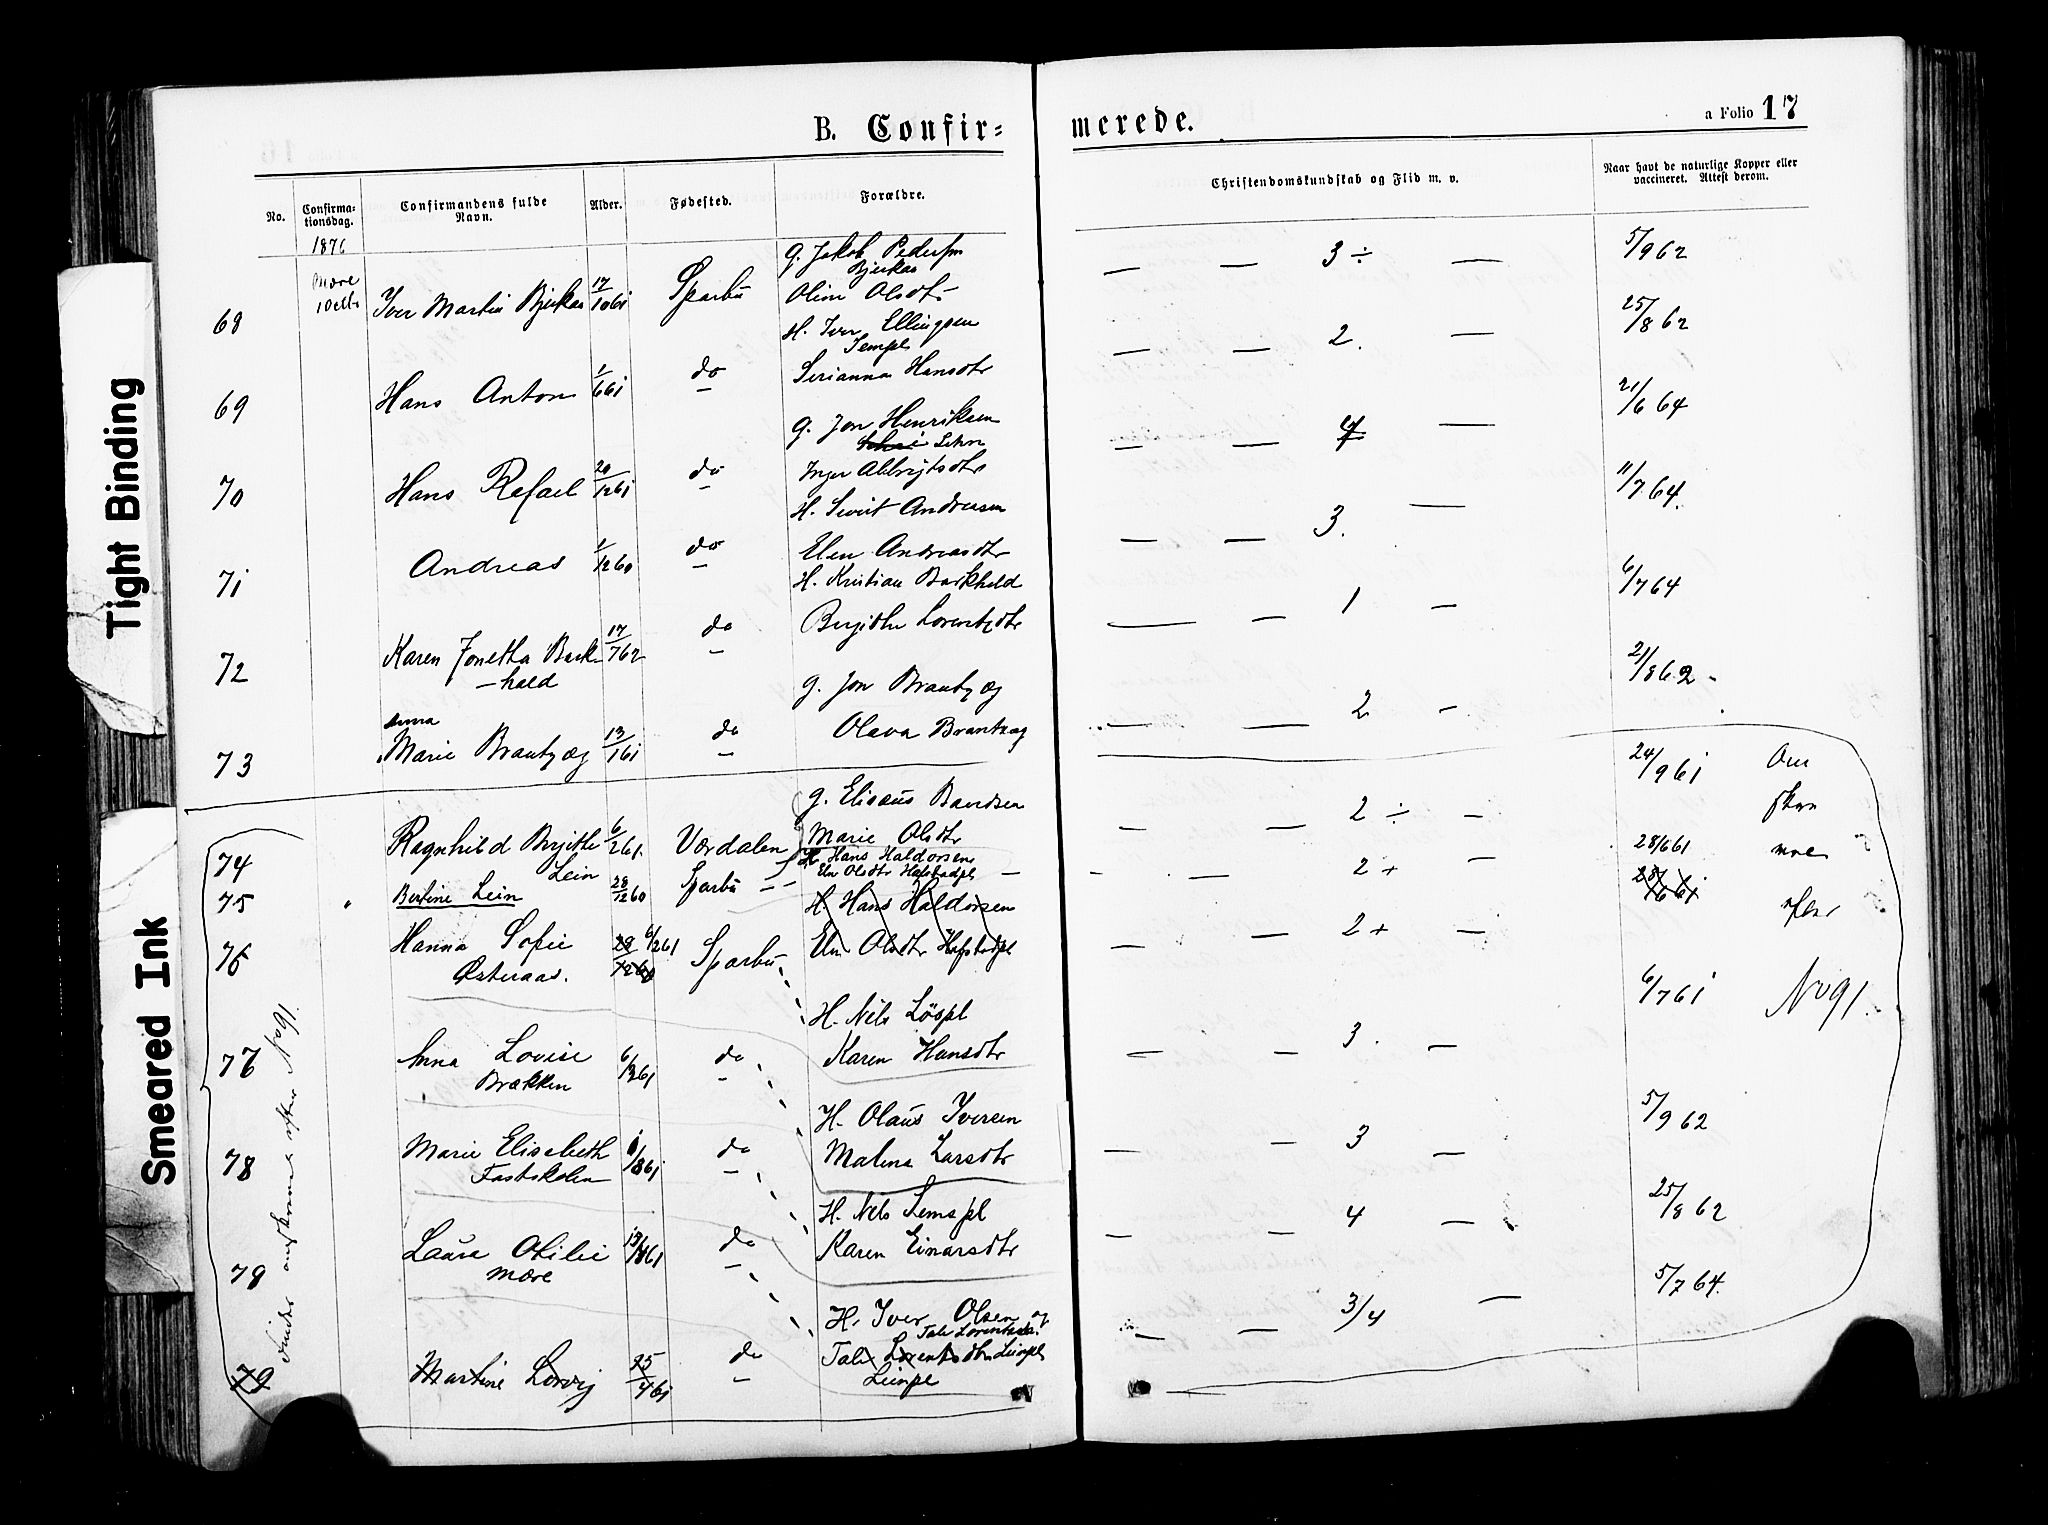 B. Confir=
merede.
a Folio 17
No.
Confirma-
tionsdag.
Confirmandens fulde
Navn.
Alder.
Fødested.
Forældre.
Christendomskundskab og Flid m. v.
Naar havt de naturlige Kopper eller
vaccineret. Attest derom.
1876
Mære
1 Octbr
68 Iver Martin Bjerkan 17/10 61 Sparbu
g. Jakob Pedersen
Bjerkan
Oline Olsdtr
— — 3 ÷ — 5/9 62
69 Hans Anton 1/6 61 do
H. Iver Ellingsen
Sempl
Serianna Hansdtr
— — 2. — 25/8 62
70 Hans Rafael 20/12 61 do
g. Jon Henriksen
Lehn
Inger Albrigtsdtr
— — 4 — 21/6 64
71 Andreas 1/12 60 do
H. Sivert Andreasen
Elen Andreasdtr
— — 3. — 11/7 64.
72 Karen Jonetha Bark
—hald 17/7 62 do
H. Kristian Barkhald
Birgitha Lorentzdtr
— — 1 — 6/7 64
73 Anna
Marie Brantzæg 13/1 61 do
g. Jon Brantzæg
Olava Brantzæg
— — 2 — 21/8 62
74 Ragnhild Birgithe
Lein 6/2 61. Værdalen
g. Elisæus Bardsen
Marie Olsdtr
— — 2 ÷ — 24/9 61
75 Bertine Lein 28/12 60 Sparbu
H. Hans Haldorsen
Elen Olsdtr Hafstadpl
- — 2 + — 28/6 61
76 Hanna Sofie
Østeraas. 28/12 60 6/2 61 Sparbu
H. Hans Haldorsen
Elen Olsdtr Hafstadpl
— — 2 + — 28/6 61
77 Anna Lovise
Brækken 6/12 61 do
H. Nels Løspl
Karen Hansdtr
— — 3. — 6/7 61
78 Marie Elisabeth
Fastskolen 1/8 61 do
H. Olaus Iversen
Malena Larsdtr
— — 3 — 5/9 62
79 Laura Otilie
Mære do
H. Nels Lempl
Karen Einarsdtr
— — 4 — 25/8 62
79 Martine Lorvig 25/4 61 do
H. Iver Olsen og
Tale Lorentsdtr.
Tale Lorentsdtr Leinpl
Leinpl
— — 3/4 — 5/7 64.
No 91.
efter No 91.
Tight Binding
Smeared Ink